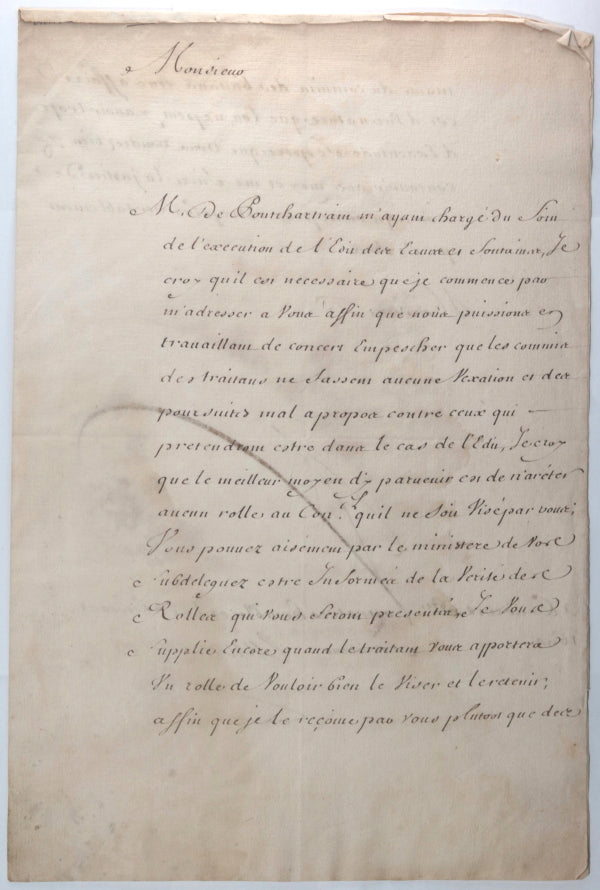 Monsieur
M. De Pontchartrain m'ayant chargé du Soin
de l'execution de l'Edit des Eaux et fontaines, Je
croy quil est necessaire que je commence par
m'adresser a Vous affin que nous puissions en
travaillant de concert Empescher que les commis
des traitans ne fassent aucune Vexation et des
poursuittes mal apropos contre ceux qui
pretendront estre dans le cas de l'Edit, Je croy
que le meilleur moyen d'y parvenir est de n'aréter
aucun rolle au Con.el quil ne soit Visé par vous;
Vous pouvez aisement par le ministere de Vos
Subdeleguez estre Informés de la Verité des
Rolles qui Vous seront presentés, Je Vous
Supplie Encore quand le traitant vous apportera
Un rolle de Vouloir bien le Viser et le retenir;
affin que je le reçoive par Vous plutost que des